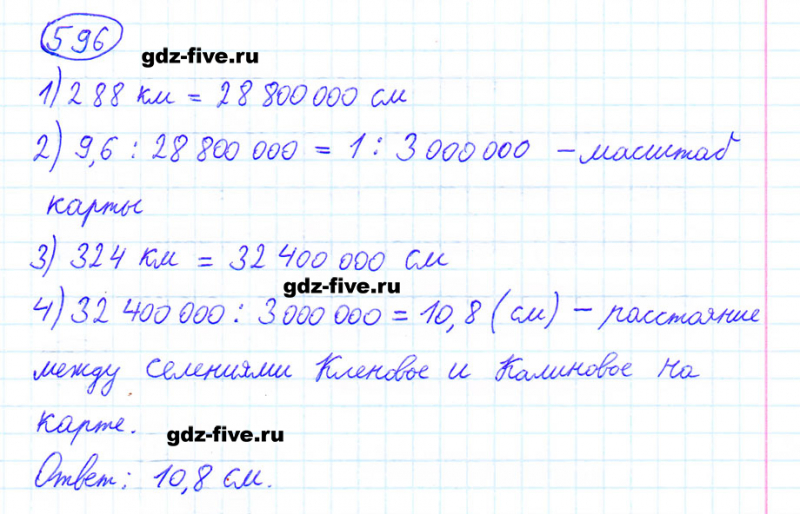 596
gdz-five.ru
1) 288 км = 28 800 000 см
2) 9,6 : 28 800 000 = 1 : 3 000 000 – масштаб
карты
3) 324 км = 32 400 000 см
gdz-five.ru
4) 32 400 000 : 3 000 000 = 10,8 (см) – расстояние
между селениями Кленовое и Калиновое на
карте.
gdz-five.ru
Ответ: 10,8 см.